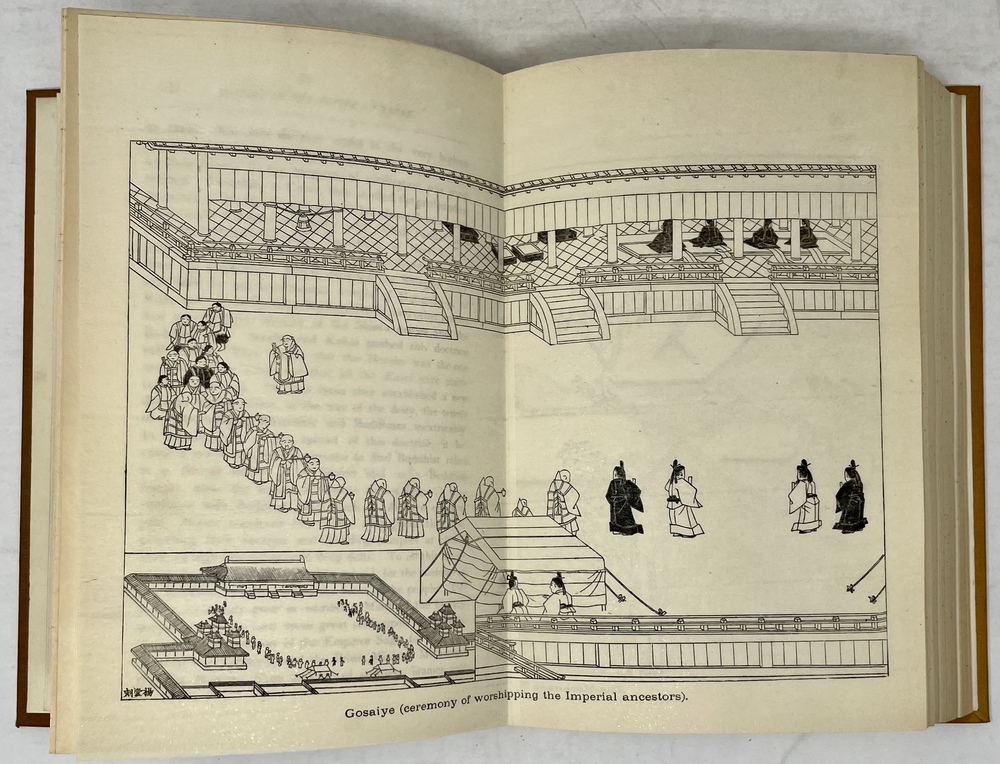 Gosaiye (ceremony of worshipping the Imperial ancestors).